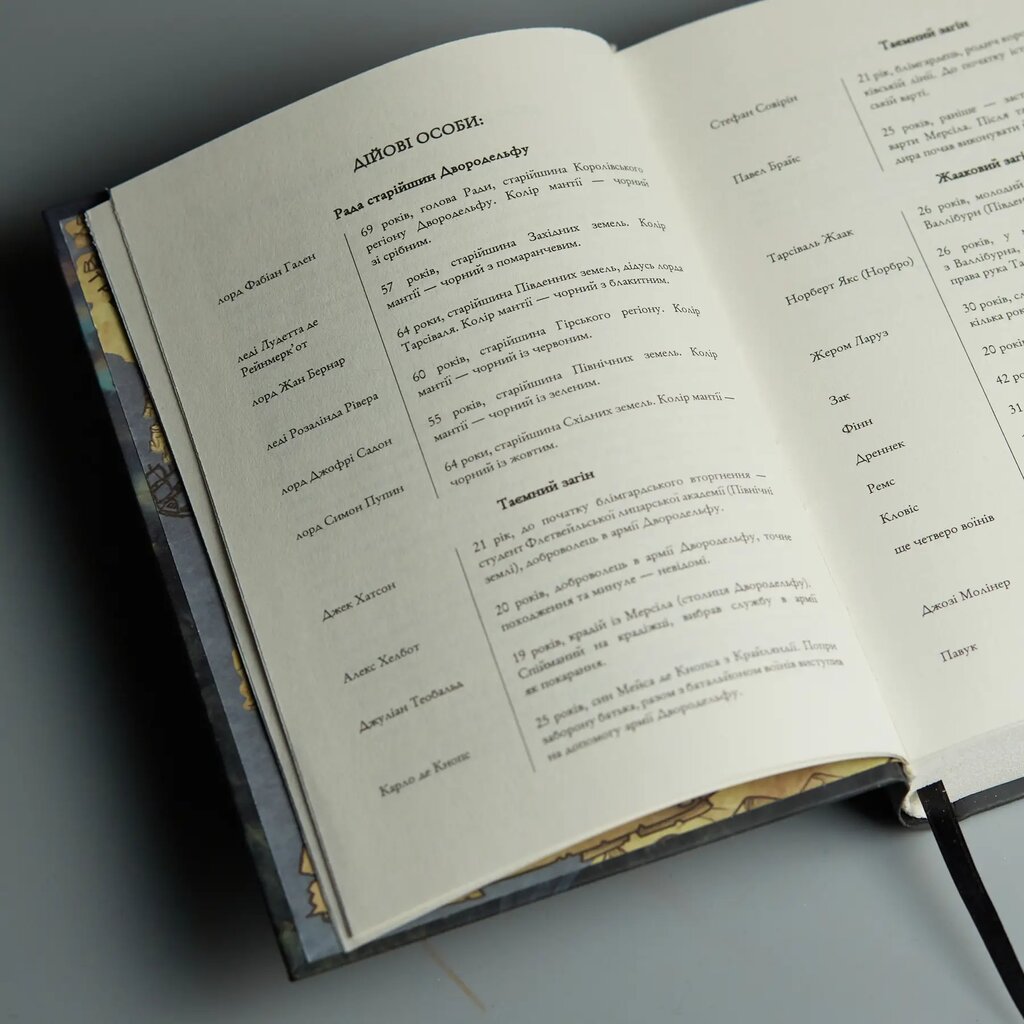 ДІЙОВІ ОСОБИ:
Рада старійшин Двородельфу
лорд Фабіан Гален
69 років, голова Ради, старійшина Королівського
регіону Двородельфу. Колір мантії — чорний
зі срібним.
леді Лудетта де
Рейнмерк'от
57 років, старійшина Західних земель. Колір
мантії — чорний з помаранчевим.
лорд Жан Бернар
64 роки, старійшина Південних земель, дідусь лорда
Тарсіваля. Колір мантії — чорний з блакитним.
леді Розалінда Рівера
60 років, старійшина Гірського регіону. Колір
мантії — чорний із червоним.
лорд Джофрі Садон
55 років, старійшина Північних земель. Колір
мантії — чорний із зеленим.
лорд Симон Пупин
64 роки, старійшина Східних земель. Колір мантії —
чорний із жовтим.
Таємний загін
Джек Хатсон
21 рік, до початку блімгардського вторгнення —
студент Флетвейльської лицарської академії (Північні
землі), доброволець в армії Двородельфу.
Алекс Хелбот
20 років, доброволець в армії Двородельфу, точне
походження та минуле — невідомі.
Джуліан Теобальд
19 років, крадій із Мерсіла (столиця Двородельфу).
Спійманий на крадіжці, вибрав службу в армії
як покарання.
Карло де Кнопс
25 років, син Мейса де Кнопса з Крайландії. Попри
заборону батька, разом з батальйоном воїнів виступив
на допомогу армії Двородельфу.
Таємний загін
Стефан Совірін
21 рік, блімгардець, родич
ківській лінії. До початку
ській варті.
Павел Брайс
25 років, раніше —
варти Мерсіла. Після
дира почав виконувати
Жааковий
Тарсіваль Жаак
26 років, молодий
Валлібури
Норберт Якс (Норбро)
26 років, у
з Валлібурна,
права рука
Жером Ларуз
30 років,
кілька
Зак
20
Фінн
42
Дреннек
31
Ремс
Кловіс
ще четверо воїнів
Джозі Молінер
Павук